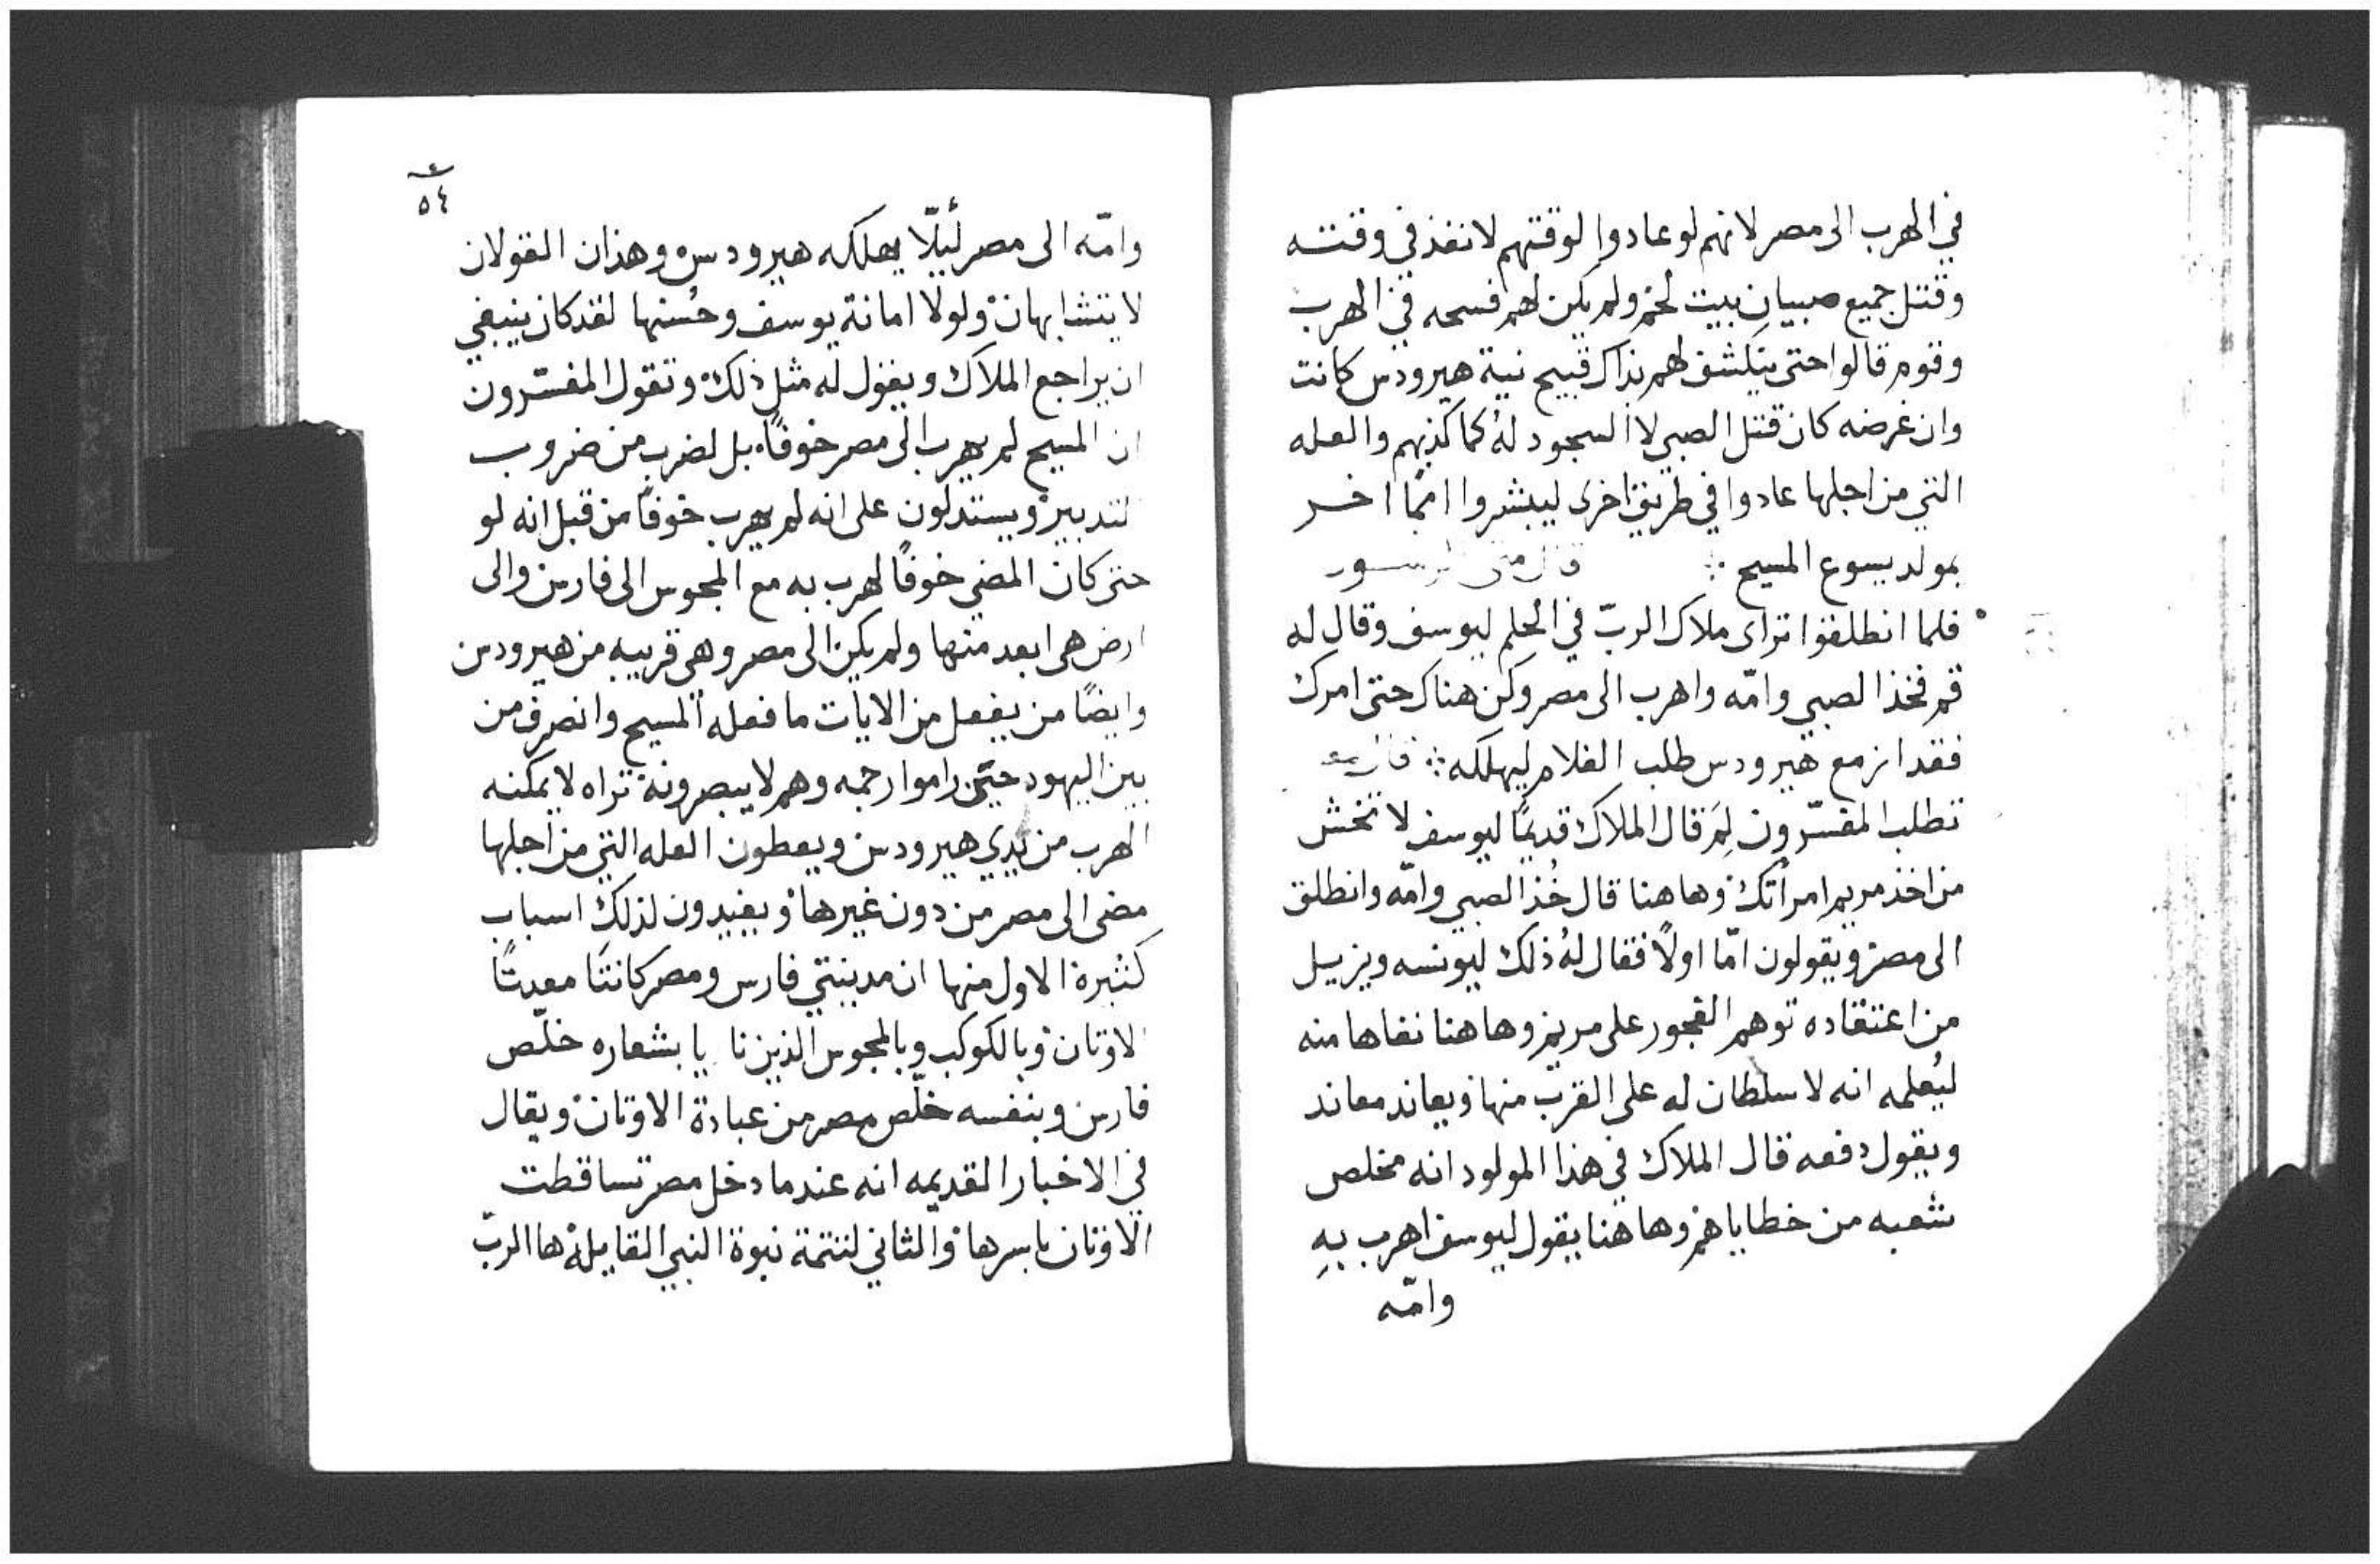 في الهرب الى مصر لانهم لو عادوا لوقتهم لانفذ في وقته
وقتل جميع صبيان بيت لحم ولم يكن لهم فسحه في الهرب
وقوم قالوا حتى ينكشف لهم بذاك قبيح نية هيرودس كانت
وان غرضه كان قتل الصبي لا السجود لهُ كما كذبهم والعله
التي من اجلها عادوا في طريق اخرى ليبشروا امماً اخر
بمولد يسوع المسيح ܀ قال متى
فلما انطلقوا تراى ملاك الربّ في الحلم ليوسف وقال له
قم فخذ الصبي وامّه واهرب الى مصر وكن هناك حتى امرك
فقد ازمع هيرودس طلب الغلام ليهلكه ܀
تطلب المفسّرون لِمَ قال الملاك قديمًا ليوسف لا تخش
من اخذ مريم امرأتك وهاهنا قال خُذ الصبي وامّه وانطلق
الى مصر ويقولون امّا اولاً فقال لهُ ذلك ليونسه ويزيل
من اعتقاده توهم الفجور على مريم وهاهنا نفاها منه
ليُعلمه انه لا سلطان له على القرب منها ويعاند معاند
ويقول دفعه قال الملاك في هذا المولود انه مخلص
شعبه من خطاياهم وهاهنا يقول ليوسف اهرب بهِ
وامّه
٥٤
وامّه الى مصر لئيلّا يهلكه هيرودس وهذان القولان
لا يتشابهان ولولا امانة يوسف وحُسنها لقد كان ينبغي
ان يراجع الملاك ويقول له مثل ذلك وتقول المفسّرون
ان المسيح لم يهرب الى مصر خوفًا بل لضرب من ضروب
التدبير ويستدلون على انه لم يهرب خوفًا من قبل انه لو
حتى كان المضي خوفًا لهرب به مع المجوس الى فارس والى
ارض هي ابعد منها ولم يكن الى مصر وهي قريبه من هيرودس
وايضًا من يفعل من الايات ما فعله المسيح وانصرف من
بين اليهود حتى راموا رجمه وهم لا يبصرونه تراه لا يمكنه
الهرب من يدي هيرودس ويعطون العله التي من اجلها
مضى الى مصر من دون غيرها ويفيدون لذلك اسباب
كثيرة الاول منها ان مدينتي فارس ومصر كانتا معدنًا
الاوثان وبالكوكب وبالمجوس الذين بشعاره خلّص
فارس وبنفسه خلّص مصر من عبادة الاوثان ويقال
في الاخبار القديمه انه عندما دخل مصر تساقطت
الاوثان باسرها والثاني لتتمة نبوة النبي القايلة ها الربّ